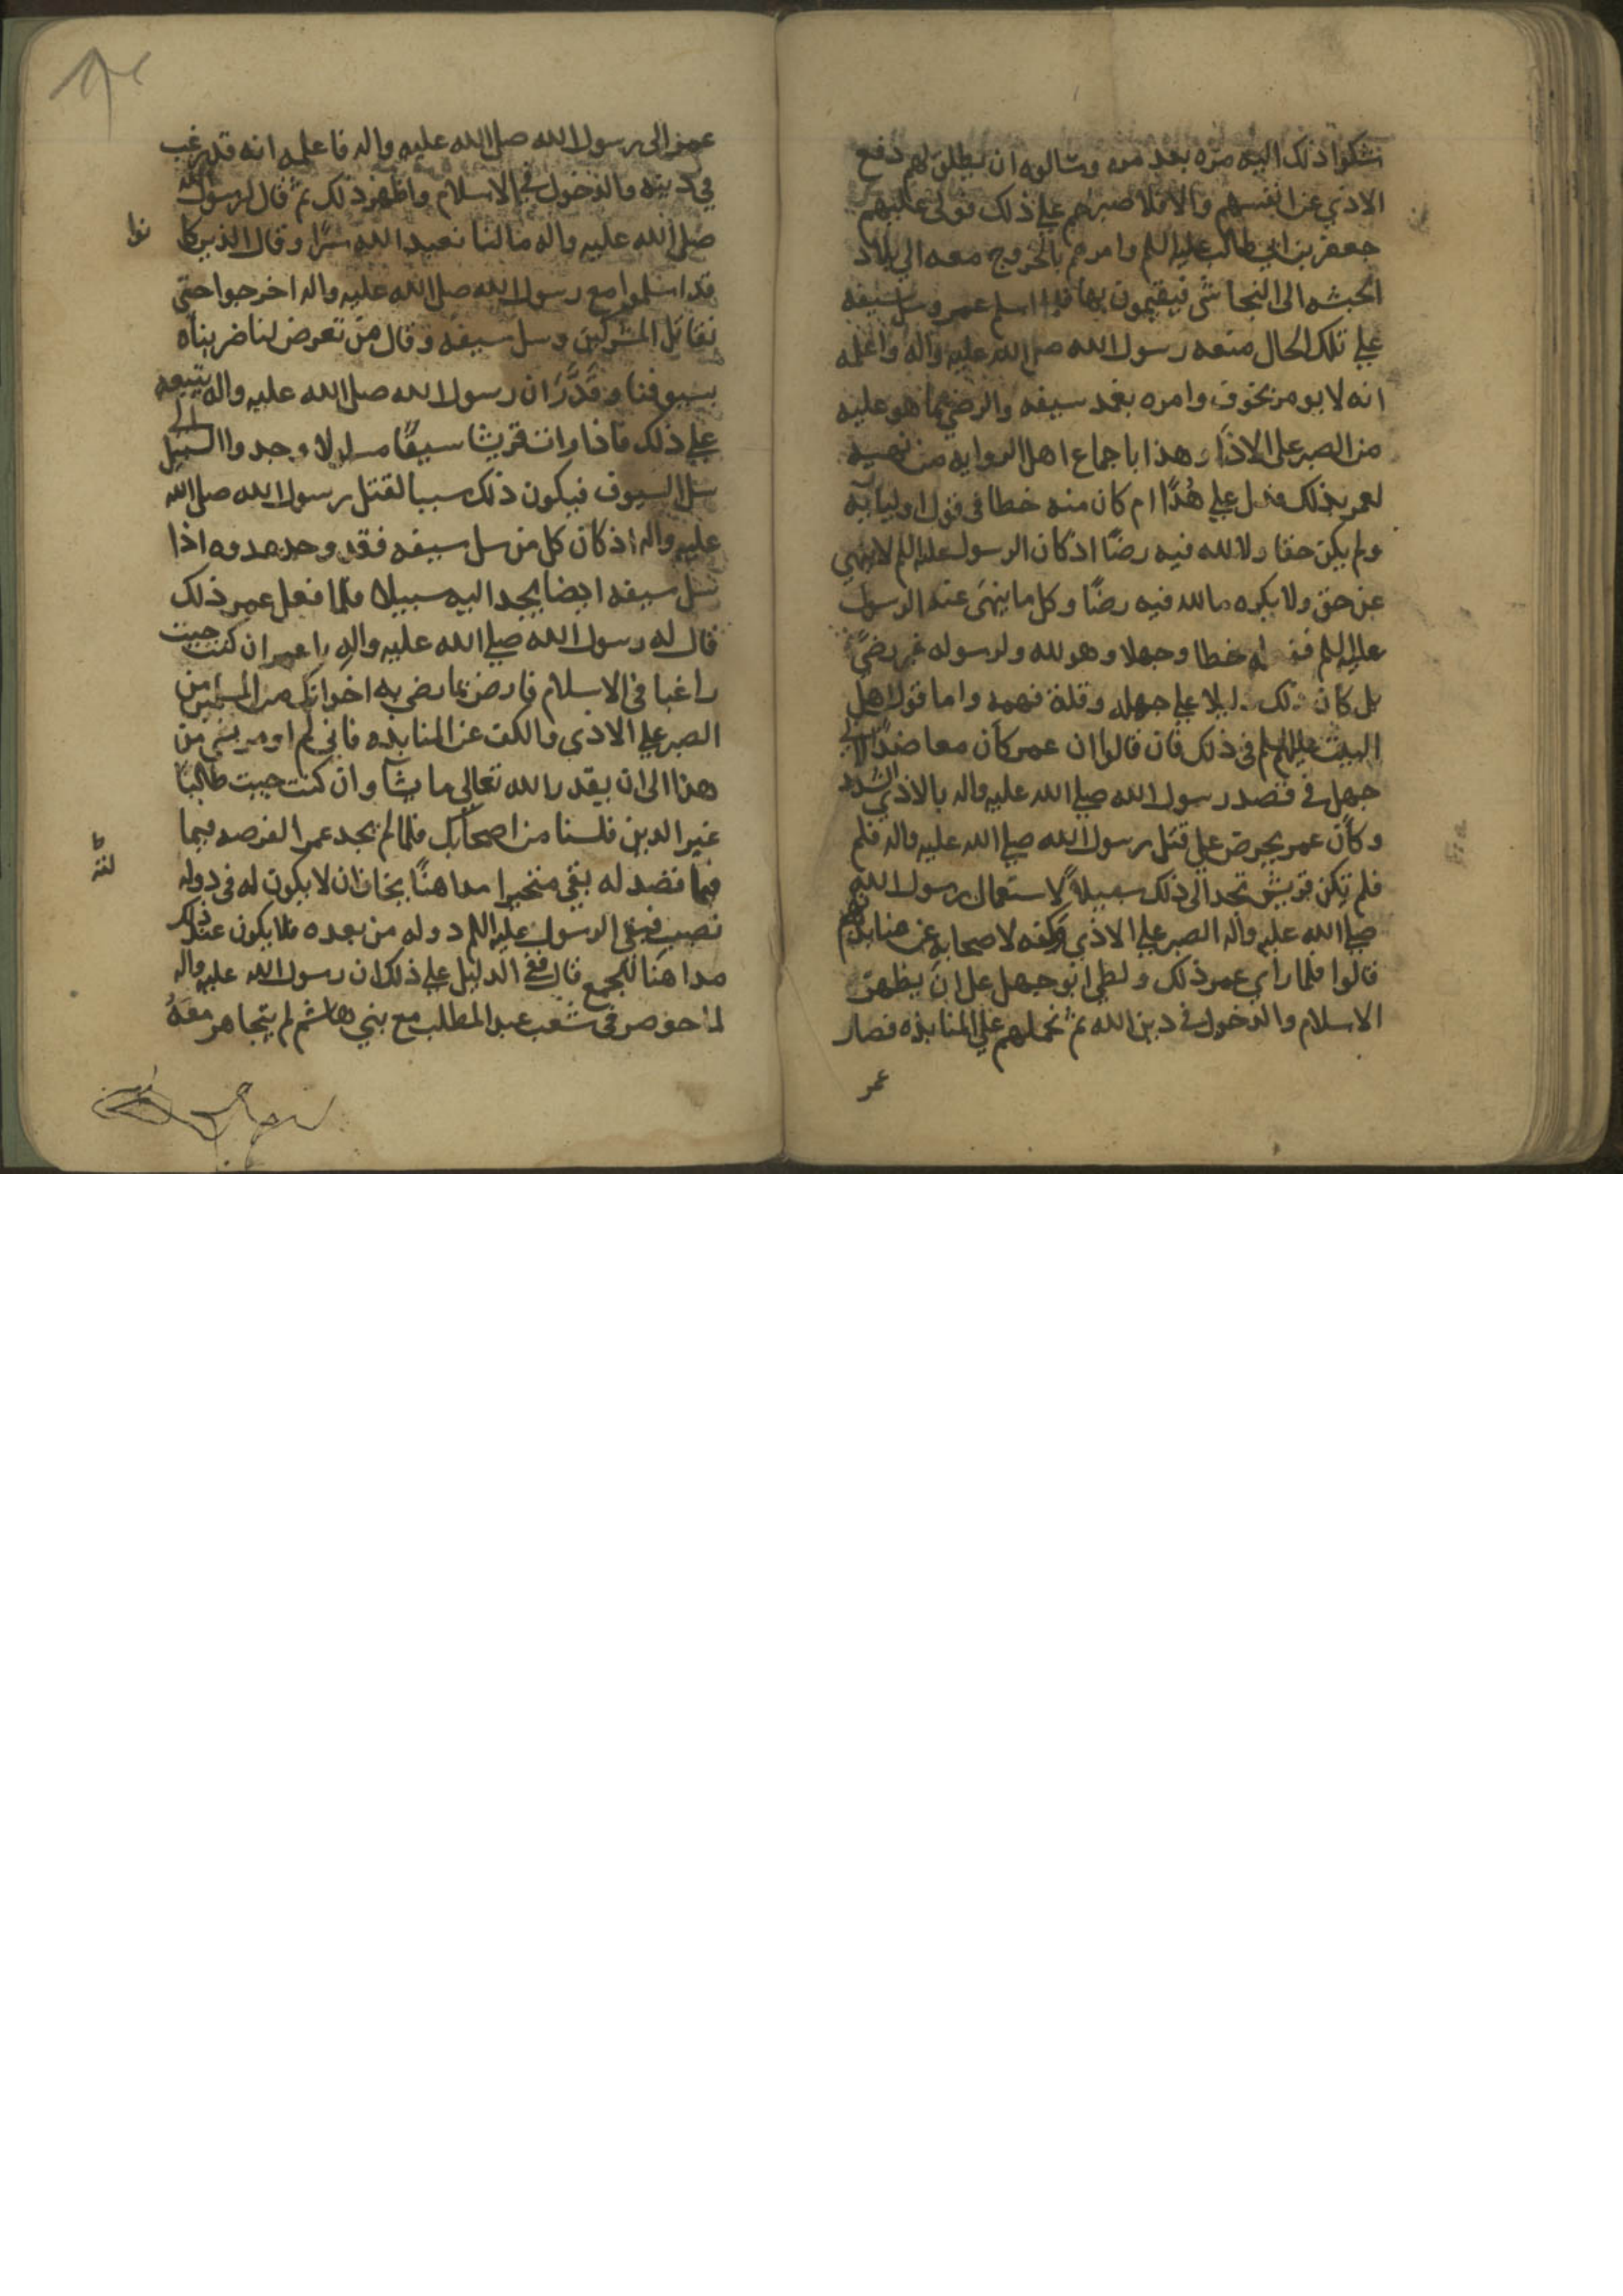 شكوا ذلك اليه مره بعد مره وسالوه ان يطلق لهم دفع
الاذي عن انفسهم والافلا صبر لهم علي ذلك فولى عليهم
جعفر بن ابي طالب عليه السلم وامرهم بالخروج معه الي بلاد
الحبشه الى النجاشي فيقيمون بها فلما اسلم عمر وسل سيفه
علي تلك الحال منعه رسول الله صلى الله عليه واله واعلمه
انه لا يومر بخوف وامره بغمد سيفه والرضي بما هو عليه
من الصبر على الاذا وهذا باجماع اهل الروايه من نهيه
لعمر بذلك فدل علي هُدًا ام كان منه خطا في قول اوليآيه
ولم يكن حقا ولا لله فيه رضًا اذ كان الرسول عليه السلم لا ينهي
عن حق ولا يكره ما لله فيه رضًا وكل ما ينهَى عنه الرسول
عليه السلم خطا وجهلا وهو لله ولرسوله غير رضيً
بل كان ذلك دليلا علي جهله وقلة فهمه واما قول اهل
البيت عليهم السلم في ذلك فان قالوا ان عمر كان معاضدًا لابي
جهل في قصد رسول الله صلي الله عليه واله بالاذي الشديد
وكان عمر يحرض علي قتل رسول الله صلي الله عليه واله فلم
فلم تكن قريش تجد الى ذلك سبيلاً لاستعمال رسول الله
صلي الله عليه واله الصبر علي الاذي وكفه لاصحابه عن منابذتهم
قالوا فلما راي عمر ذلك ولطي ابو جهل على ان يظهر
الاسلام والدخول في دين الله ثم نحملهم علي المنابذه فصار
عمر
عمر الى رسول الله صلى الله عليه واله فاعلمه انه قد رغب
في دينه والدخول في الاسلام واظهر ذلك ثم قال لرسول الله
صلى الله عليه واله ما لنا نعبد الله سرًا وقال الذين كا
نوا
قد اسلموا مع رسول الله صلى الله عليه واله اخرجوا حتى
نقاتل المشركين وسل سيفه وقال من تعرض لنا ضربناه
بسيوفنا وقَدَّرَ ان رسول الله صلى الله عليه واله يتبعه
علي ذلك فاذا رات قريشا سيفًا وجدوا السبيل الى
سل السيوف فيكون ذلك سببا لقتل رسول الله صلى الله
عليه واله اذ كان كل من سل سيفه فقد وجد عدوه اذا
سل سيفه ايضا يجد اليه سبيلا فلما فعل عمر ذلك
قال له رسول الله صلي الله عليه واله يا عمر ان كنت جيت
راغبا في الاسلام فارض بما رضي به اخوانك من المسلمين من
الصبر علي الاذي والكف عن المنابذه فاني لم اومر بشي من
هذا الى ان يقدر الله تعالي ما يشآ وان كنت جيت طالبًا
غير الدين فلسنا من اصحابك فلما لم يجد عمر الفرصه فيما
فيما قصد له بقي متحيرا مداهنًا يخاف ان لا يكون له في دوله
نصيب فيبقى الرسول عليه السلم دوله من بعده فلا يكون عند ذلك
مداهنًا للجميع قال ففي الدليل علي ذلك ان رسول الله عليه واله
لما حوصر في شعب عبد المطلب مع بني هاشم لم يتجاهر معهُ